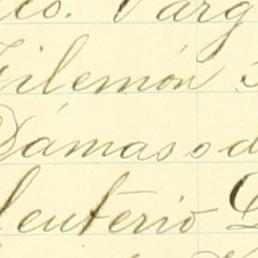 co. Varg
Filemón
Dámaso d
leuterio